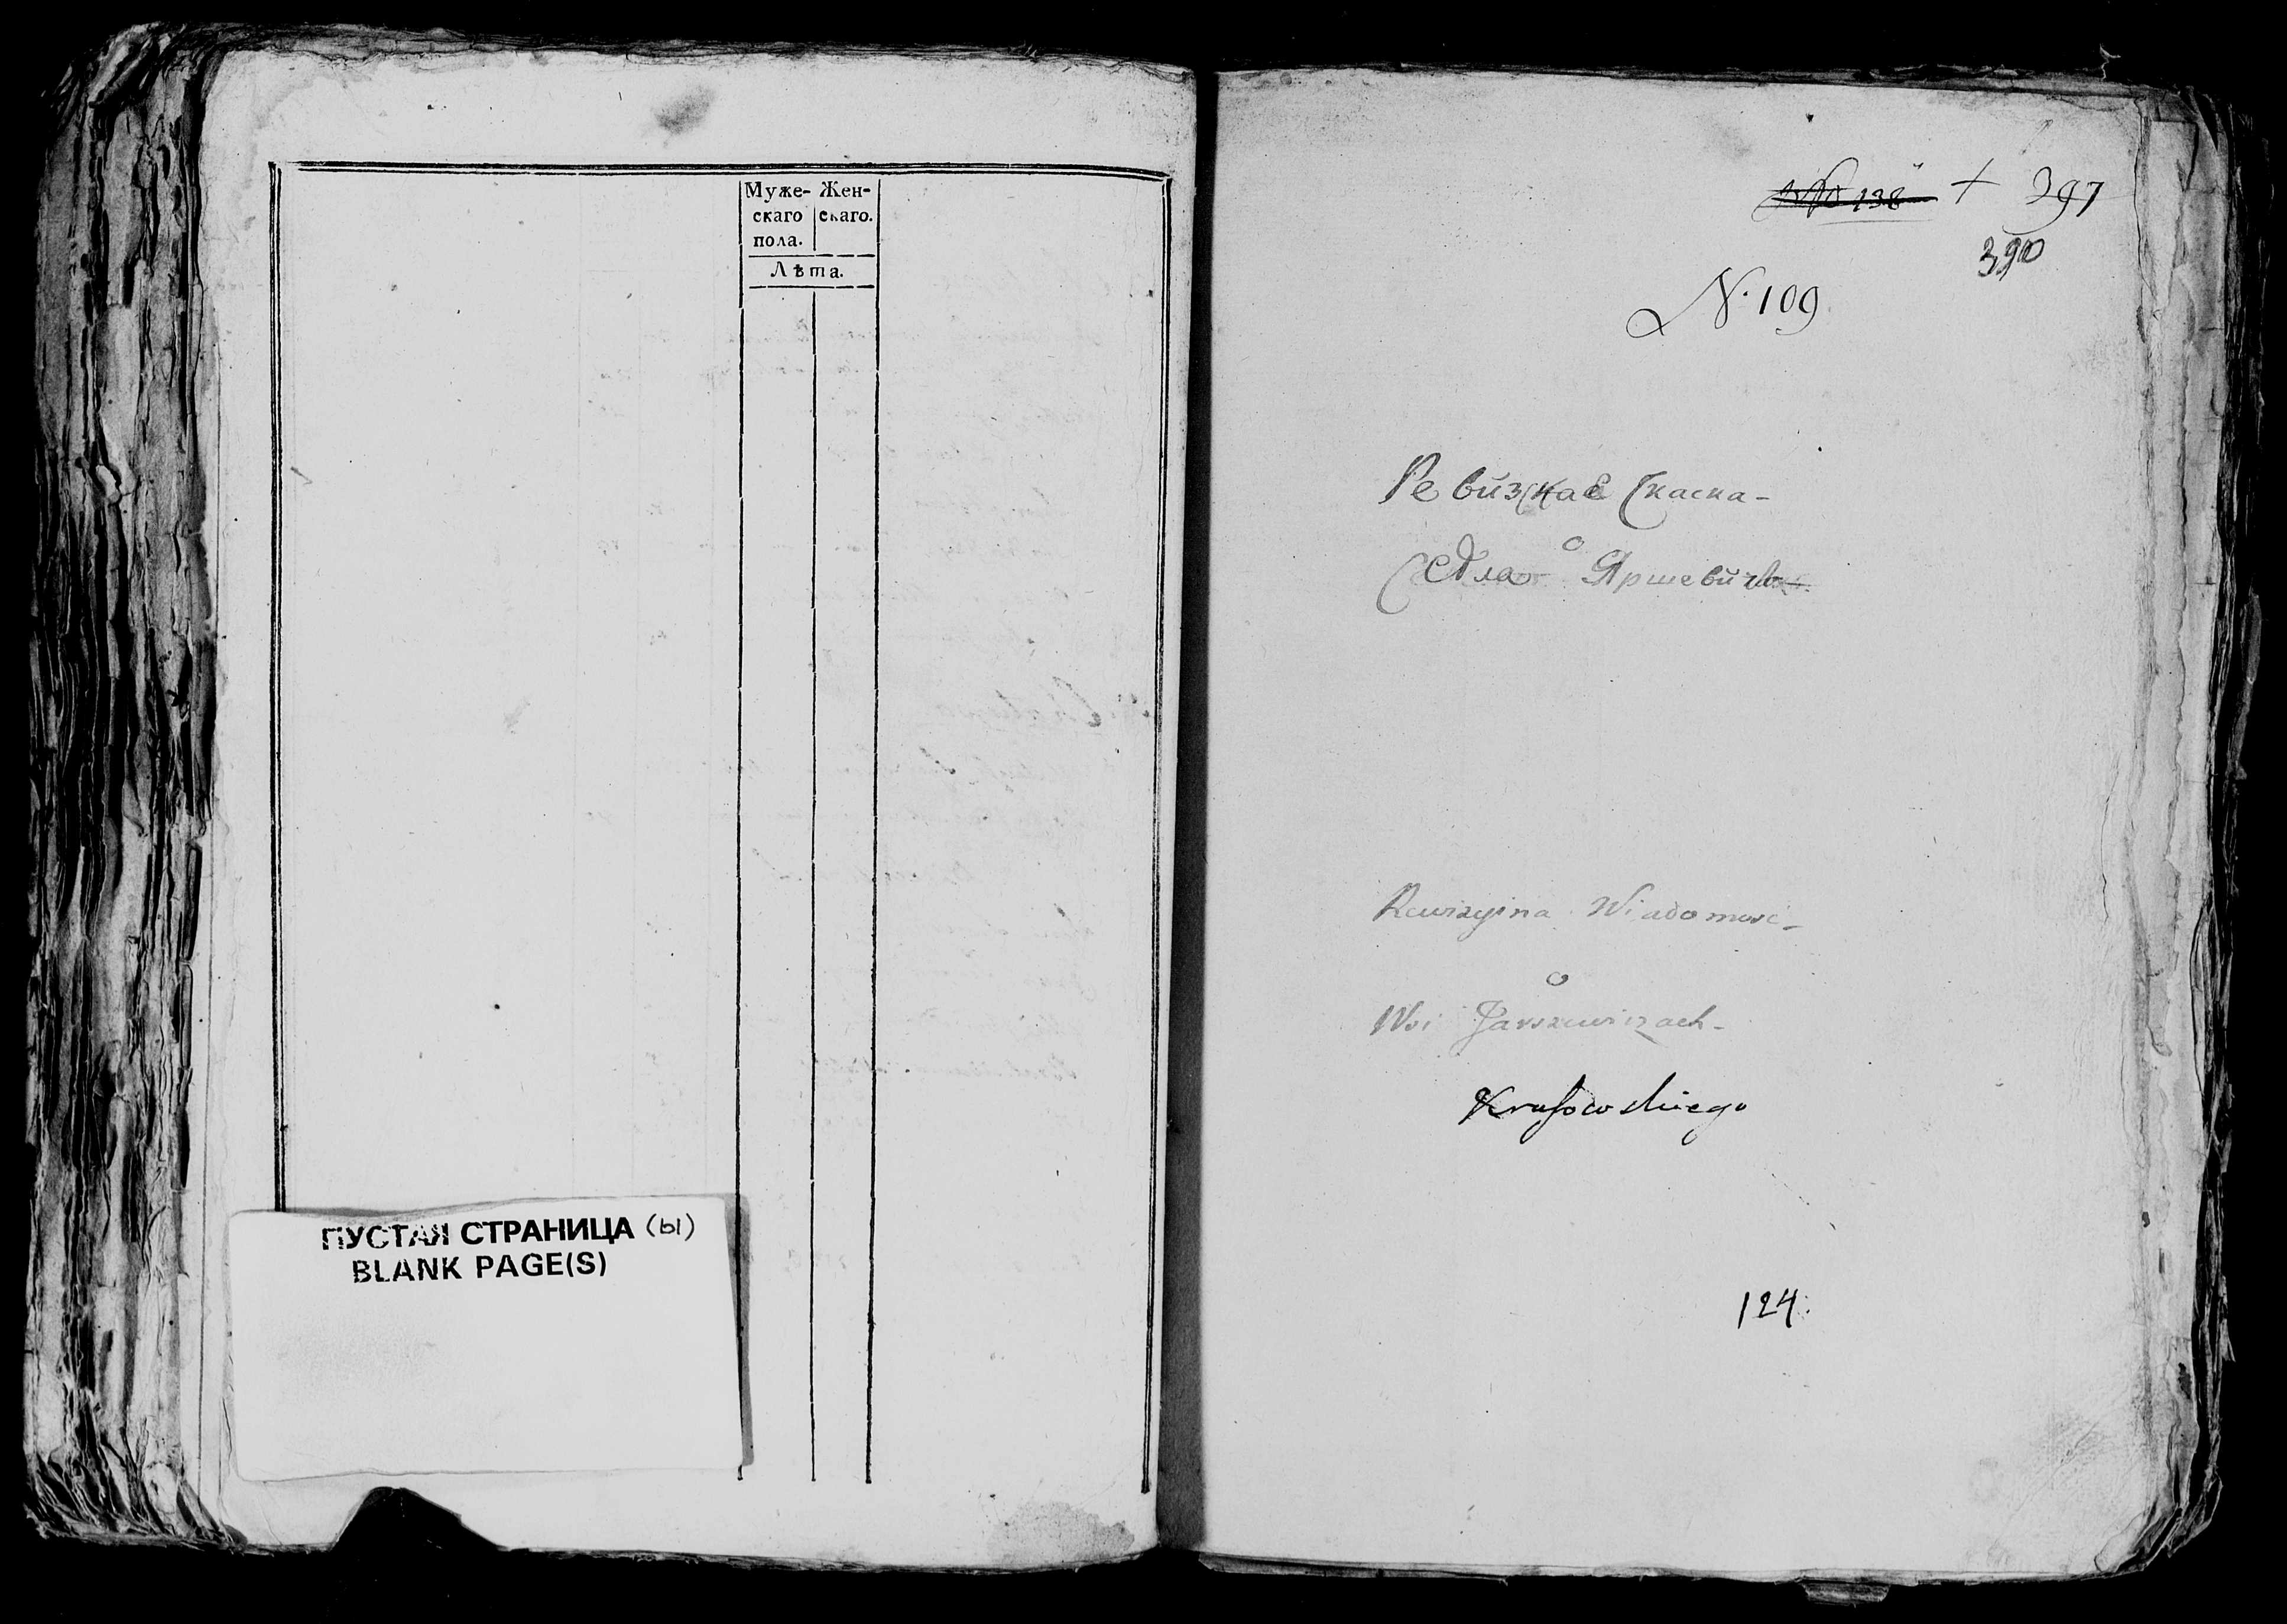 Муже- Жен-
скаго скаго.
пола.
Лѣта.
ПУСТАЯ СТРАНИЦА (ы)
BLANK PAGE(S)
№ 138 + 397
390
N. 109
Ревизская Скаска-
о
Села Яршевичь
Rewizyina Wiadomość-
o
Wsi Jarszewiczach-
Krasowskiego
124.